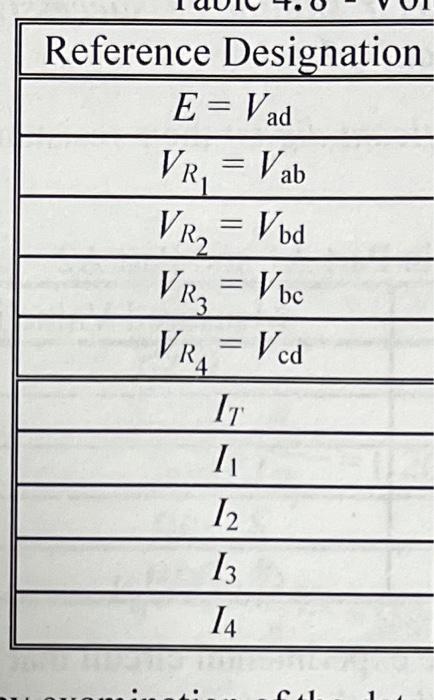 Table 4.8 - Vol
Reference Designation
E = V_ad
V_R1 = V_ab
V_R2 = V_bd
V_R3 = V_bc
V_R4 = V_cd
I_T
I_1
I_2
I_3
I_4
examination of the